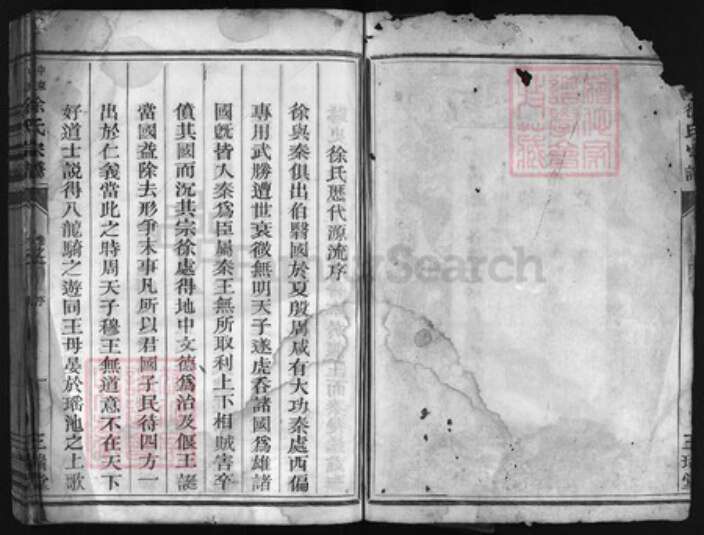 徐氏歷代源流序
徐與秦俱出伯翳國於夏殷周咸有大功秦處西偏
專用武勝遭世衰微無明天子遂虎吞諸國為雄諸
國旣皆入秦為臣屬秦王無所取利上下相賊害卒
僨其國而沉其宗徐處得地中文德為治及偃王誕
當國益除去形爭末事凡所以君國子民待四方一
出於仁義當此之時周天子穆王無道意不在天下
好道士說得八龍騎之遊同王母晏於瑤池之上歌
徐氏宗譜
序
三
堂
Search